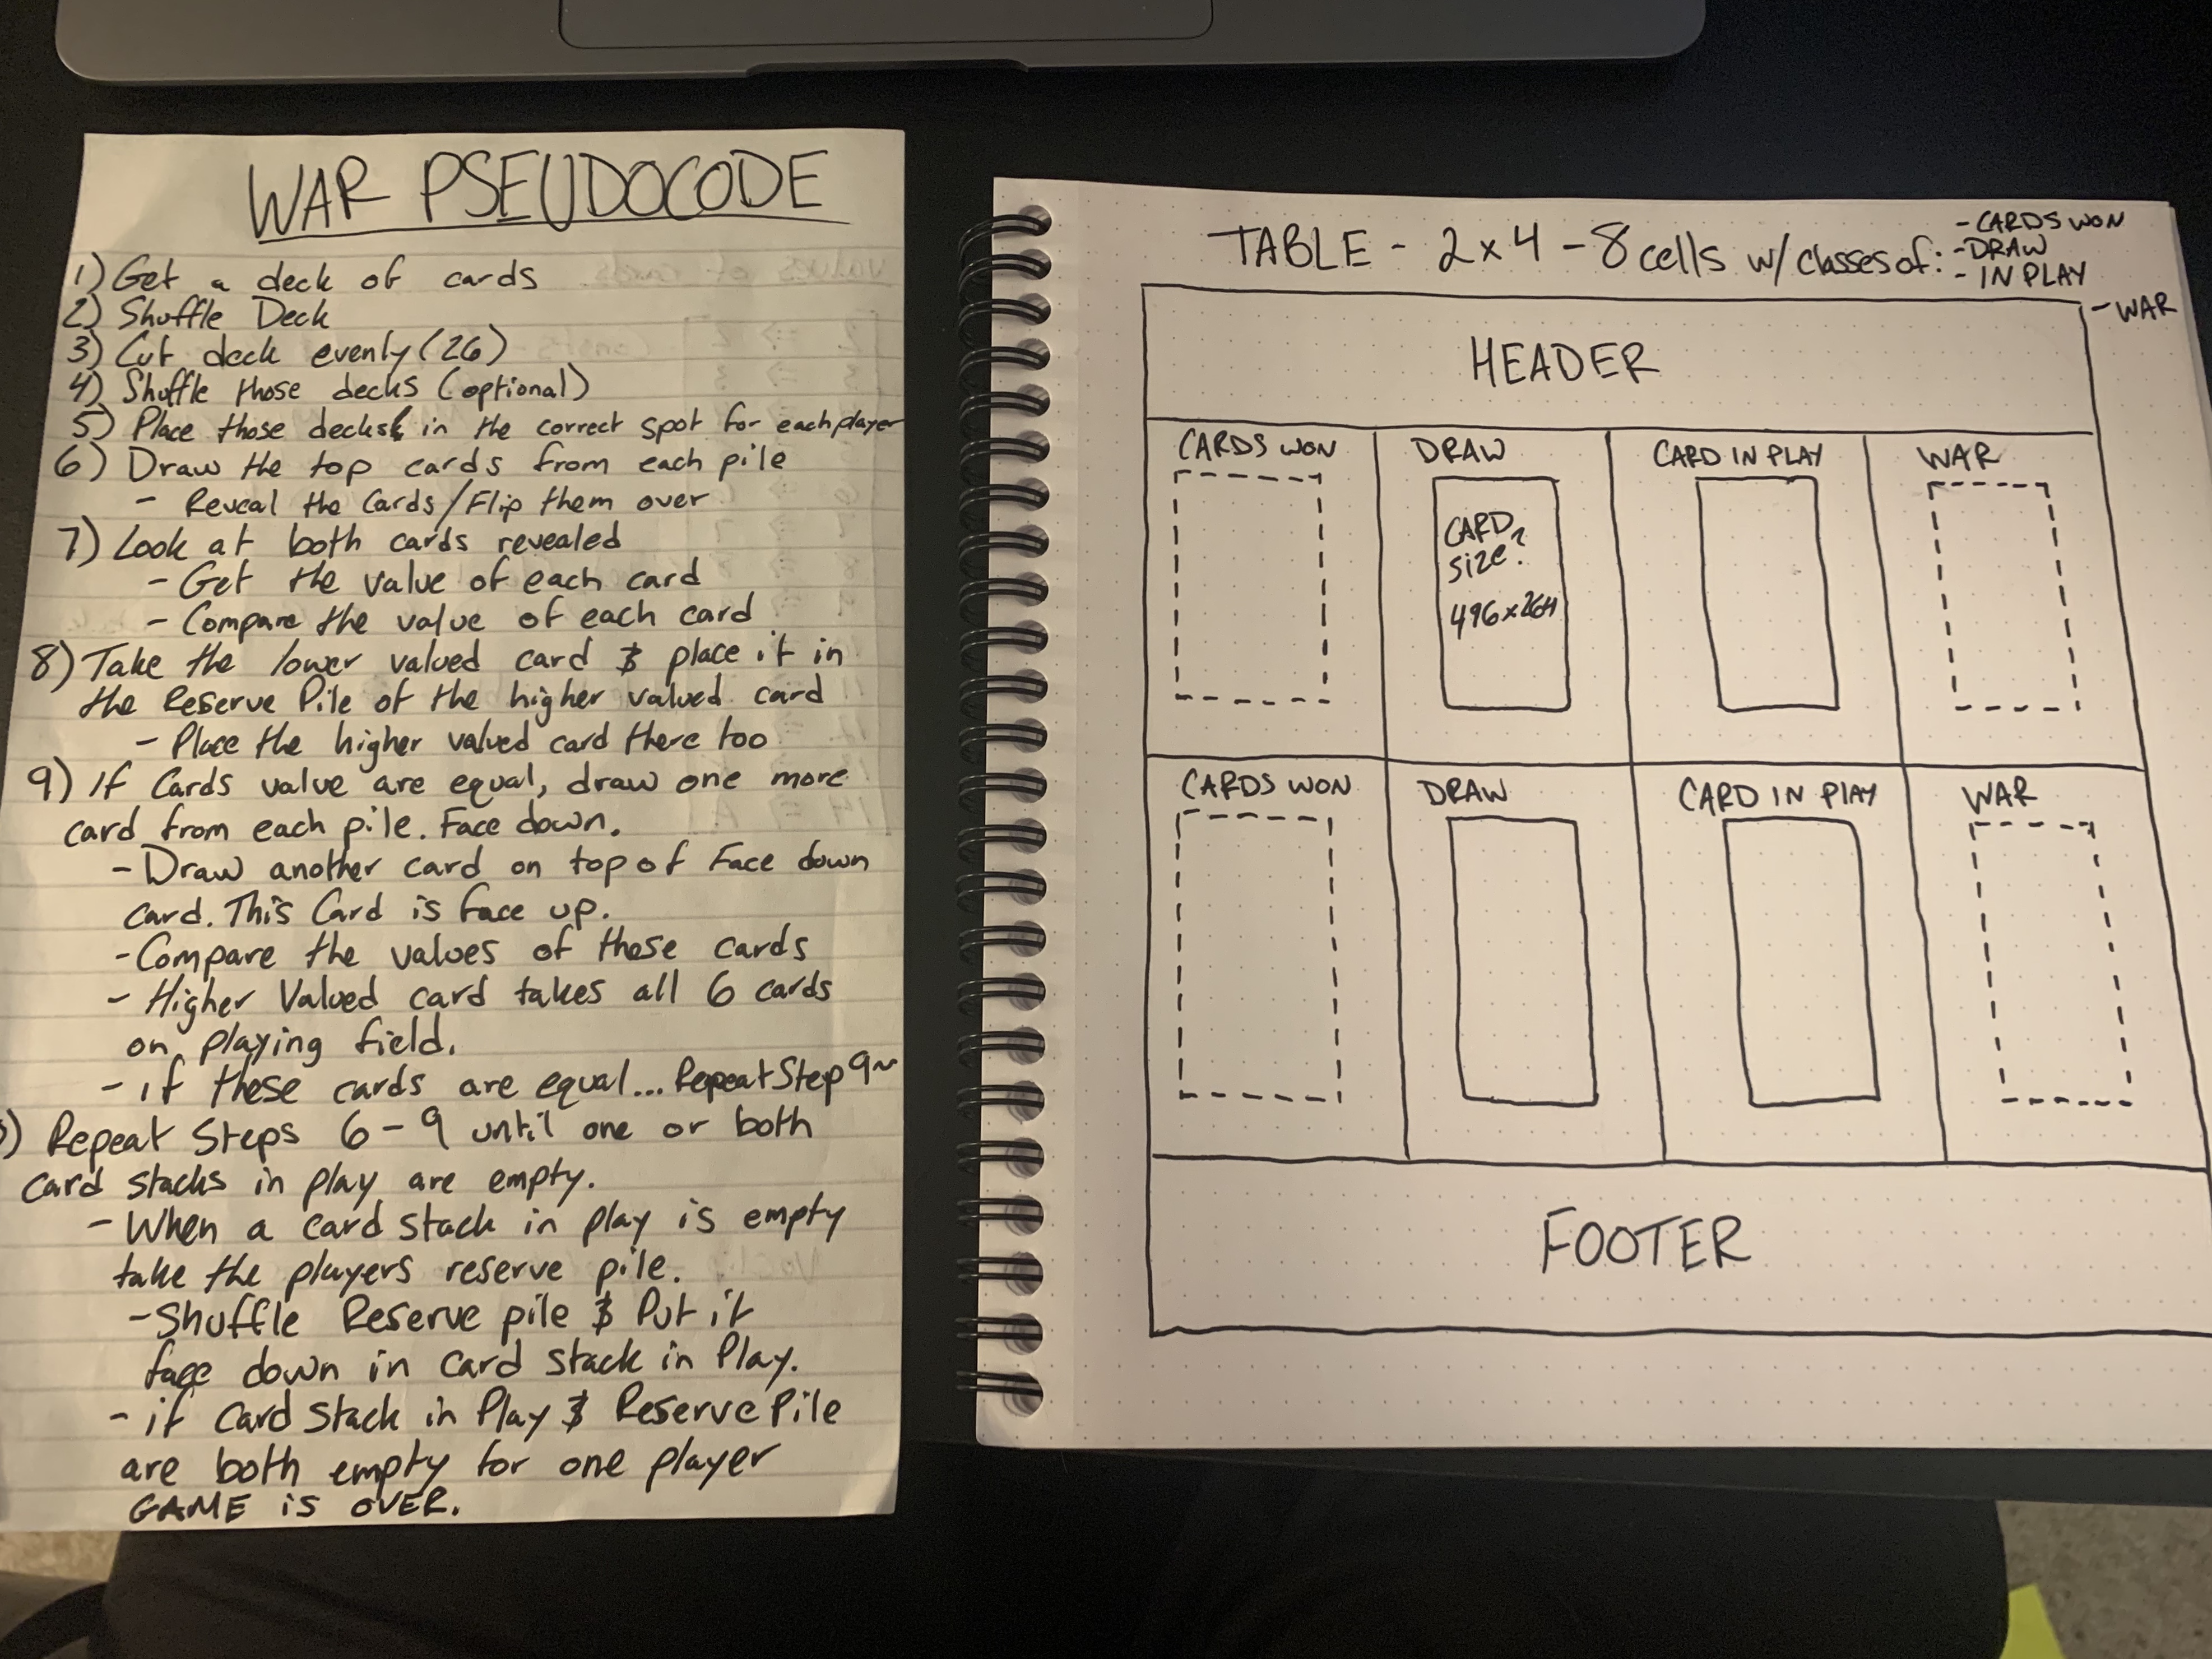 WAR PSEUDOCODE
1) Get a deck of cards
2) Shuffle Deck
3) Cut deck evenly (26)
4) Shuffle those decks (optional)
5) Place those decks in the correct spot for each player
6) Draw the top cards from each pile
- Reveal the Cards/Flip them over
7) Look at both cards revealed
- Get the value of each card
- Compare the value of each card
8) Take the lower valued card & place it in
the Reserve Pile of the higher valued card
- Place the higher valued card there too
9) If Cards value are equal, draw one more
card from each pile. Face down.
- Draw another card on top of Face down
card. This Card is face up.
- Compare the values of these cards
- Higher Valued card takes all 6 cards
on playing field.
- if these cards are equal... Repeat Step 9~
) Repeat Steps 6-9 until one or both
card stacks in play are empty.
- When a card stack in play is empty
take the players reserve pile.
- Shuffle Reserve pile & Put it
face down in card stack in Play.
- if Card Stack in Play & Reserve Pile
are both empty for one player
GAME is OVER.
TABLE - 2x4 - 8 cells w/ classes of:
- CARDS WON
- DRAW
- IN PLAY
- WAR
HEADER
CARDS WON
DRAW
CARD IN PLAY
WAR
CARD
size?
496x264
CARDS WON
DRAW
CARD IN PLAY
WAR
FOOTER